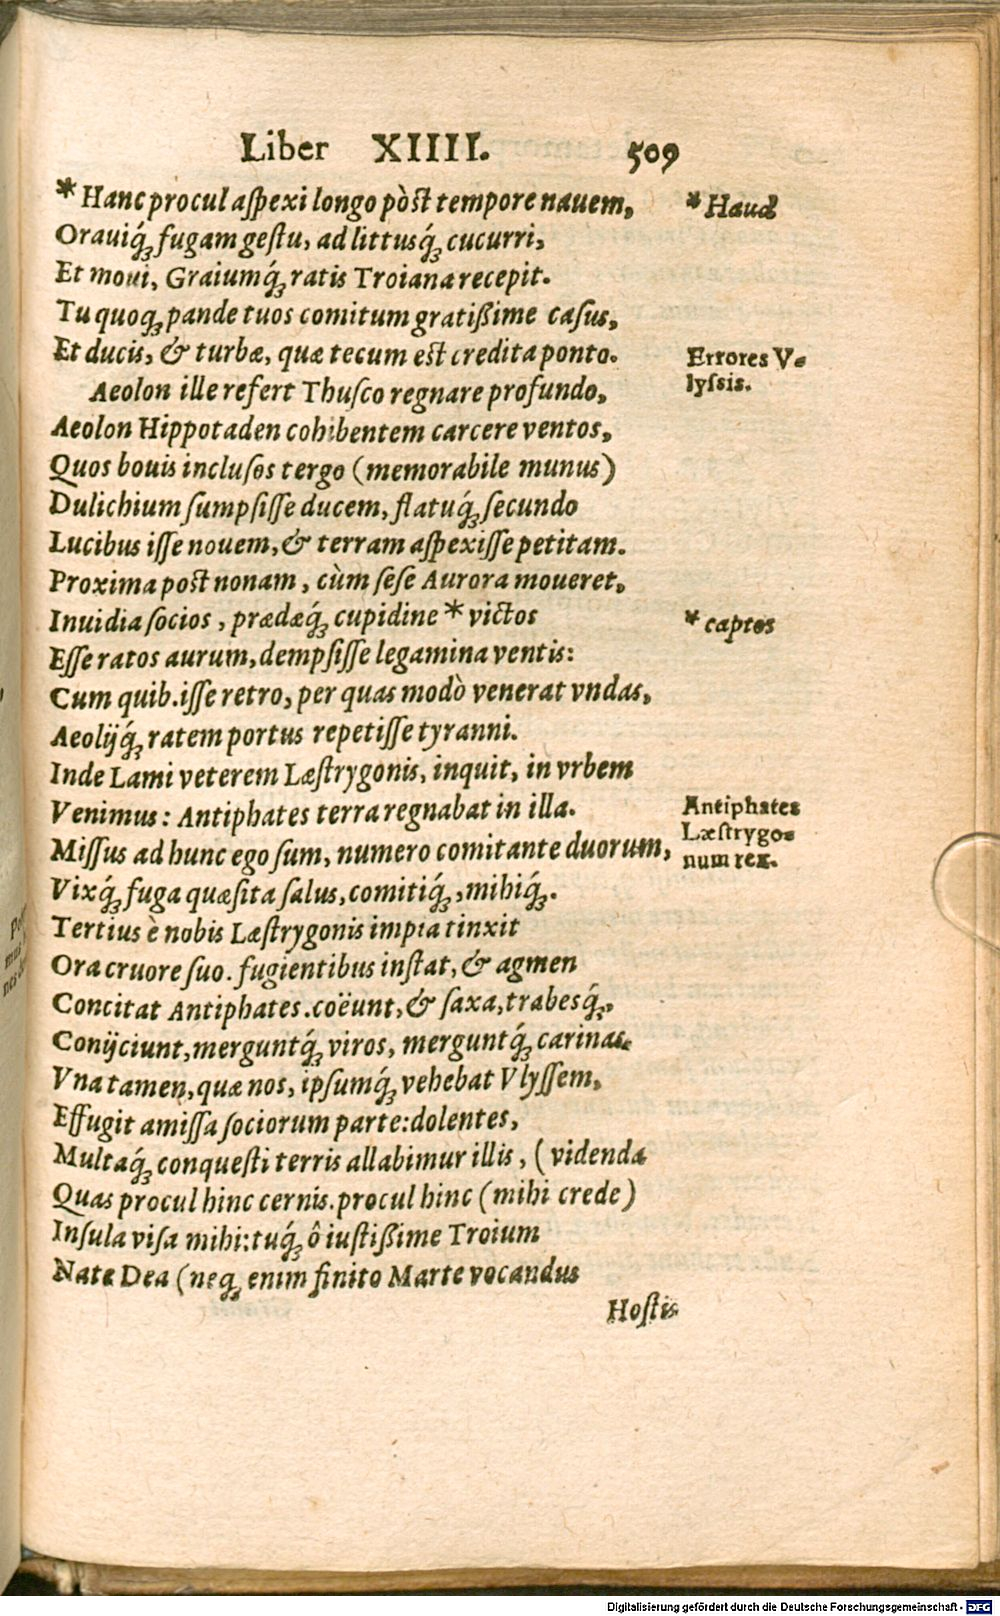 Liber XIIII. 509
*Hanc procul aſpexi longo pòſt tempore nauem, *Haud
Orauiq́; fugam geſtu, ad littusq́; cucurri,
Et moui, Graiumq́; ratis Troiana recepit.
Tu quoq; pande tuos comitum gratißime caſus,
Et ducis, & turbæ, quæ tecum eſt credita ponto. Errores V-
lyſsis.
Aeolon ille refert Thuſco regnare profundo,
Aeolon Hippotaden cohibentem carcere ventos,
Quos bouis incluſos tergo (memorabile munus)
Dulichium ſumpſiſſe ducem, flatuq́; ſecundo
Lucibus iſſe nouem, & terram aſpexiſſe petitam.
Proxima poſt nonam, cùm ſeſe Aurora moueret,
Inuidia ſocios, prædæq́; cupidine * victos *captos
Eſſe ratos aurum, dempſiſſe legamina ventis:
Cum quib. iſſe retro, per quas modò venerat vndas,
Aeolijq́; ratem portus repetiſſe tyranni.
Inde Lami veterem Læſtrygonis, inquit, in vrbem
Venimus: Antiphates terra regnabat in illa. Antiphates
Læſtrygo-
num rex.
Miſſus ad hunc ego ſum, numero comitante duorum,
Vixq́; fuga quæſita ſalus, comitiq́;, mihiq́;.
Tertius è nobis Læſtrygonis impia tinxit
Ora cruore ſuo. fugientibus inſtat, & agmen
Concitat Antiphates. coëunt, & ſaxa, trabesq́;,
Conijciunt, merguntq́; viros, merguntq́; carinas.
Vna tamen, quæ nos, ipſumq́; vehebat Vlyſſem,
Effugit amiſſa ſociorum parte: dolentes,
Multaq́; conqueſti terris allabimur illis, (videnda
Quas procul hinc cernis. procul hinc (mihi crede)
Inſula viſa mihi: tuq́; ô iuſtißime Troium
Nate Dea (neq; enim finito Marte vocandus
Hoſtis
Digitalisierung gefördert durch die Deutsche Forschungsgemeinschaft - DFG